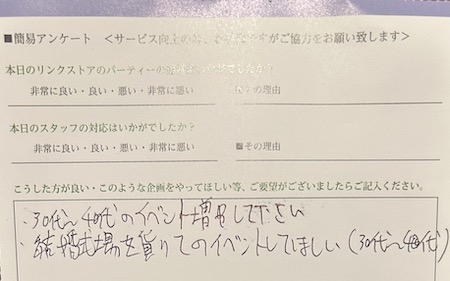 ■簡易アンケート <サービス向上の為、 ですがご協力をお願い致します>
本日のリンクストアのパーティーの はいかがでしたか?
非常に良い・良い・悪い・非常に悪い の理由
本日のスタッフの対応はいかがでしたか?
非常に良い・良い・悪い・非常に悪い ■その理由
こうした方が良い・このような企画をやってほしい等、ご要望がございましたらご記入ください。
・30代〜40代のイベント増やして下さい
・結婚式場を貸りてのイベントしてほしい(30代〜40代)